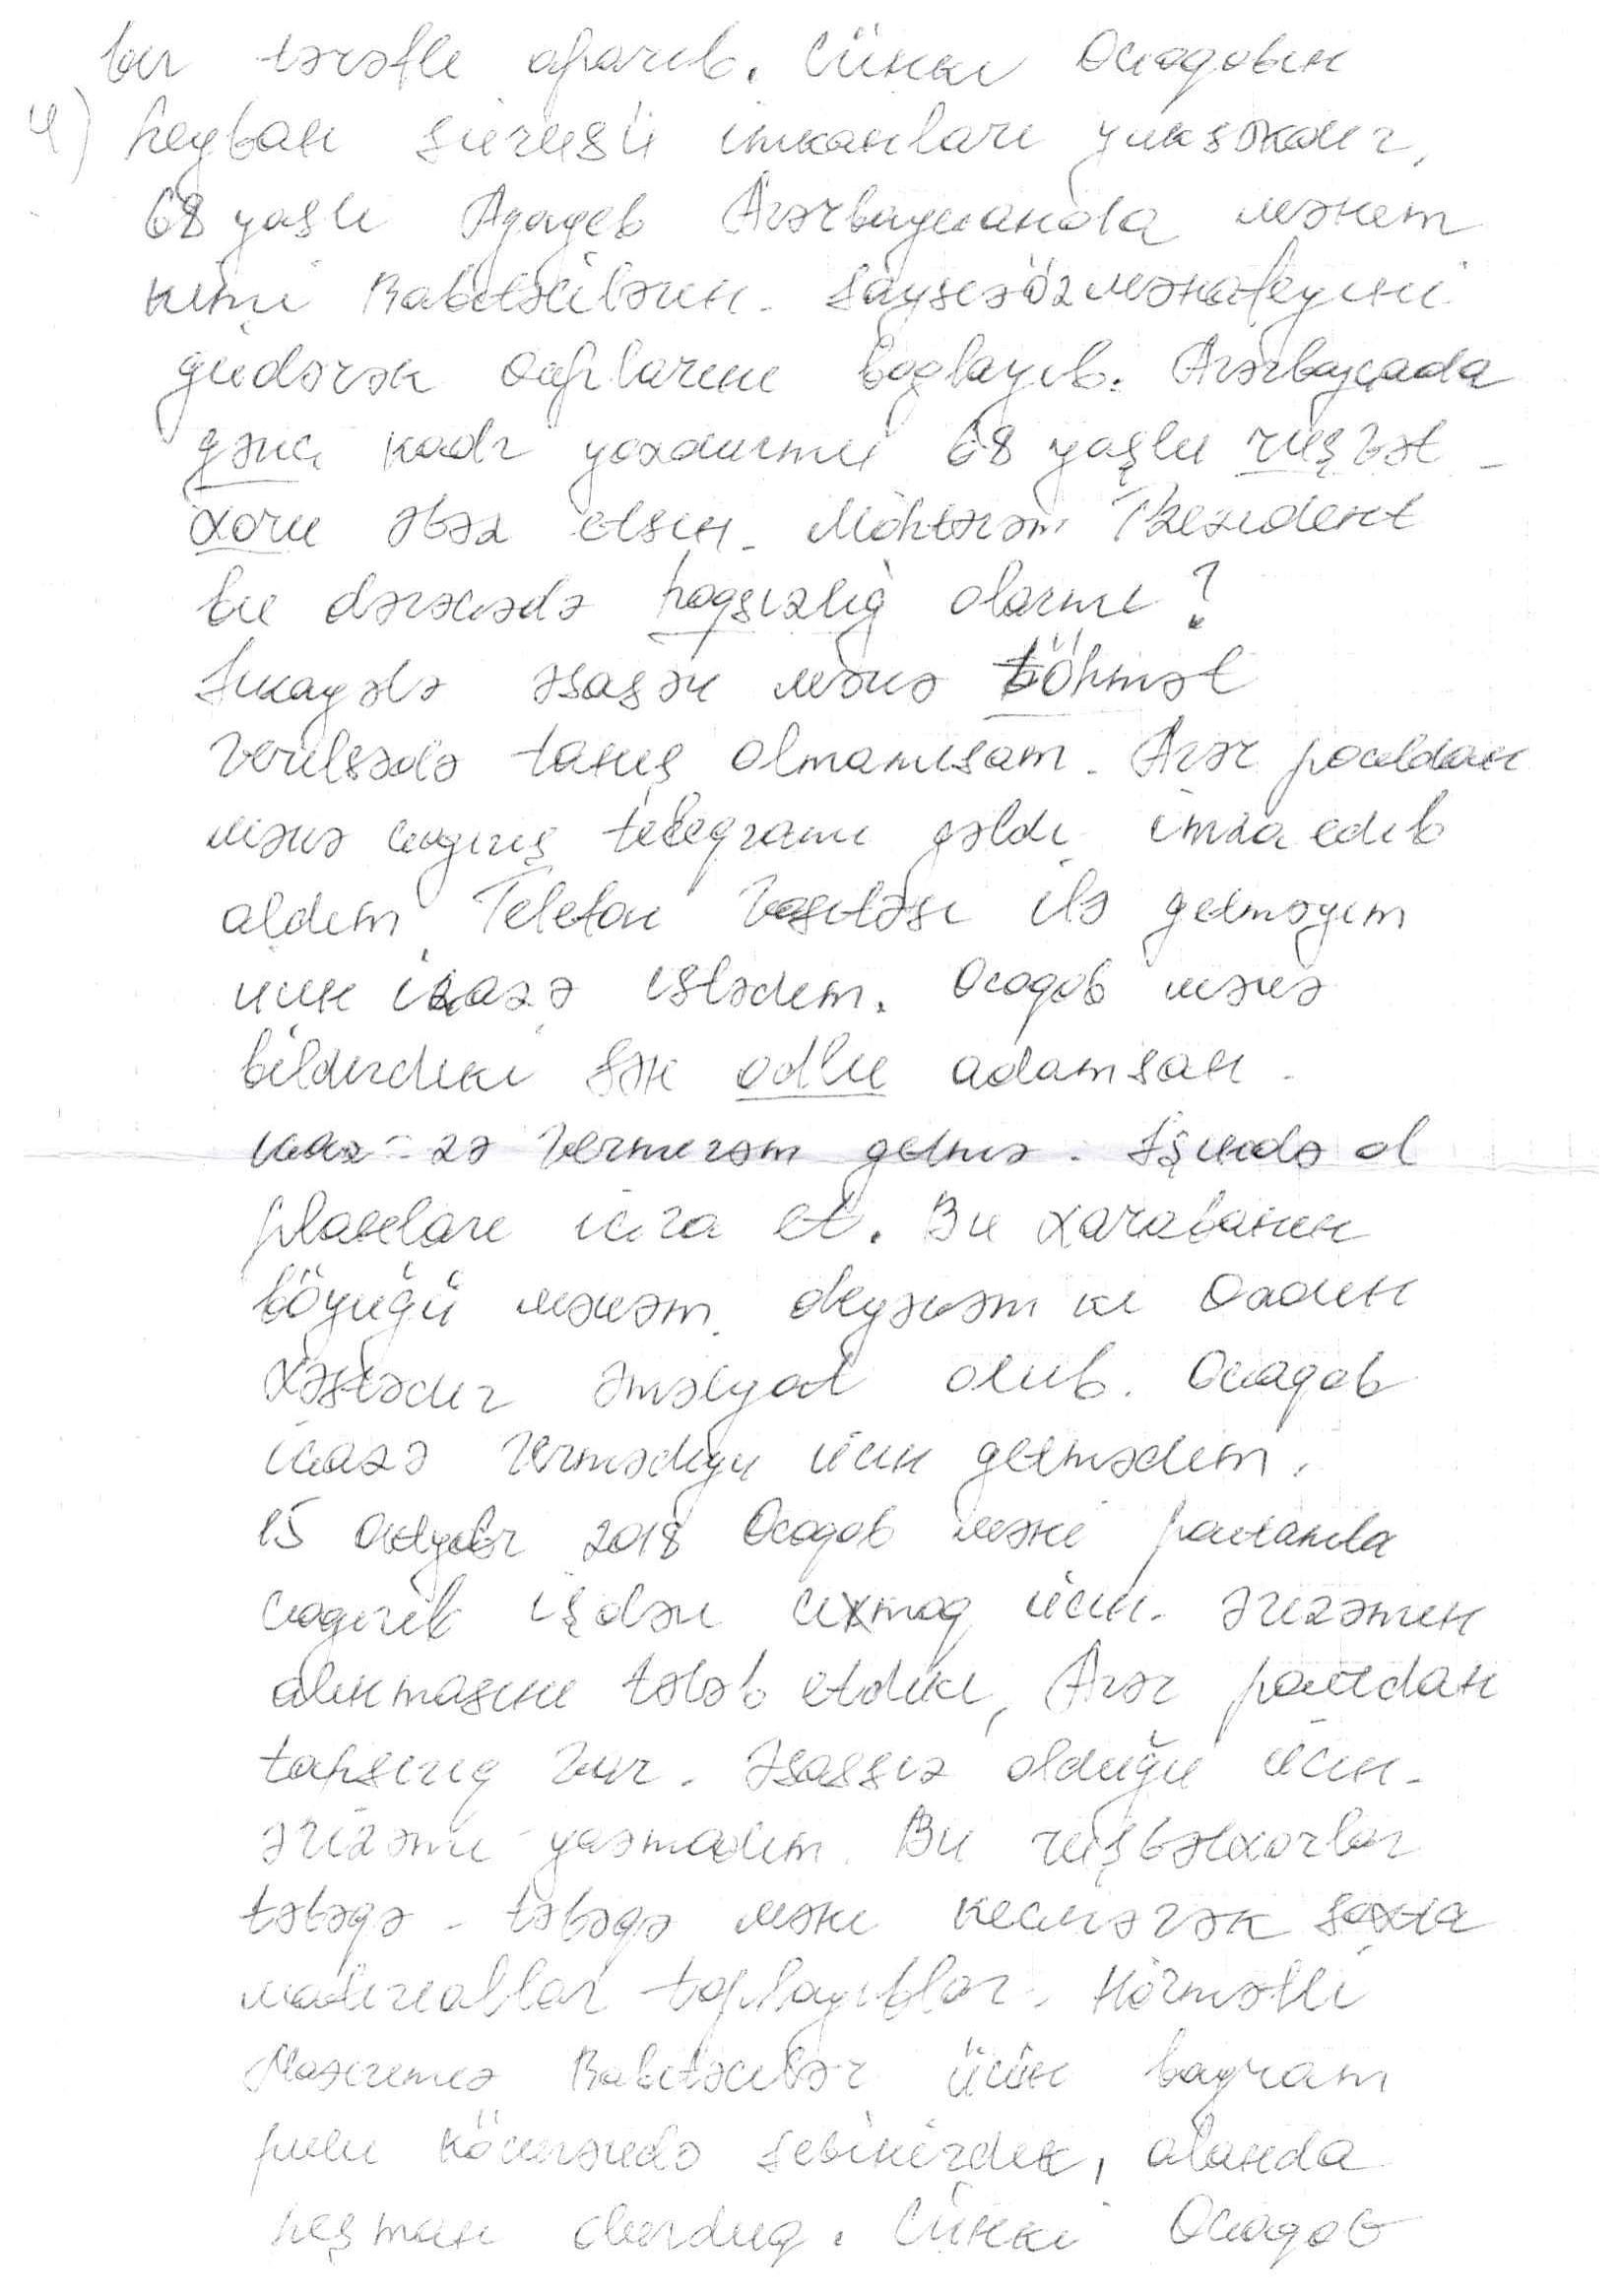 bir tərəfli aparıb. Çünki Ocaqovın
4) heyvan sürüsü imkanları yüksəkdir,
68 yaşlı Aqayev Azərbaycanda mənəm
kimi Rabitəçilərin. Şəxsi öz mənafeyini
güdərək ağızlarını bağlayıb. Azərbaycada
gənc kadr yoxdurmu 68 yaşlı rüşvət -
xoru əvəz etsin. Möhtərəm Prezident
bu dərəcədə haqsızlıq olarmı?
Şikayətə əsasən mənə töhmət
verilsədə tanış olmamışam. Azər poçtdan
mənə çağırış teleqramı gəldi imza edib
aldım. Telefon vasitəsi ilə getməyim
üçün icazə istədim. Ocaqov mənə
bildirdiki sən odlu adamsan.
icaz-zə vermirəm getmə. İşində ol
planları icra et. Bu xarabanın
böyüyü mənəm. deyirəm ki Qadın
xəstədir əməlyat olub. Ocaqov
icazə vermədiyi üçün getmədim.
15 Oktyabr 2018 Ocaqov məni poçtamta
çağırıb işdən çıxmaq üçün. ərizəmin
alınmasını tələb etdiki, Azər poçtdan
tapşırıq var. Əsassız olduğu üçün.
ərizəmi yazmadım. Bu rüşvətxorlar
təbəqə - təbəqə məni keçirərək saxta
materiallar toplayıblar. Hörmətli
Nazirimiz Rabitəçilər üçün bayram
pulu köçürəndə sevinirdik, alanda
peşman olurduq. Çünki Ocaqov